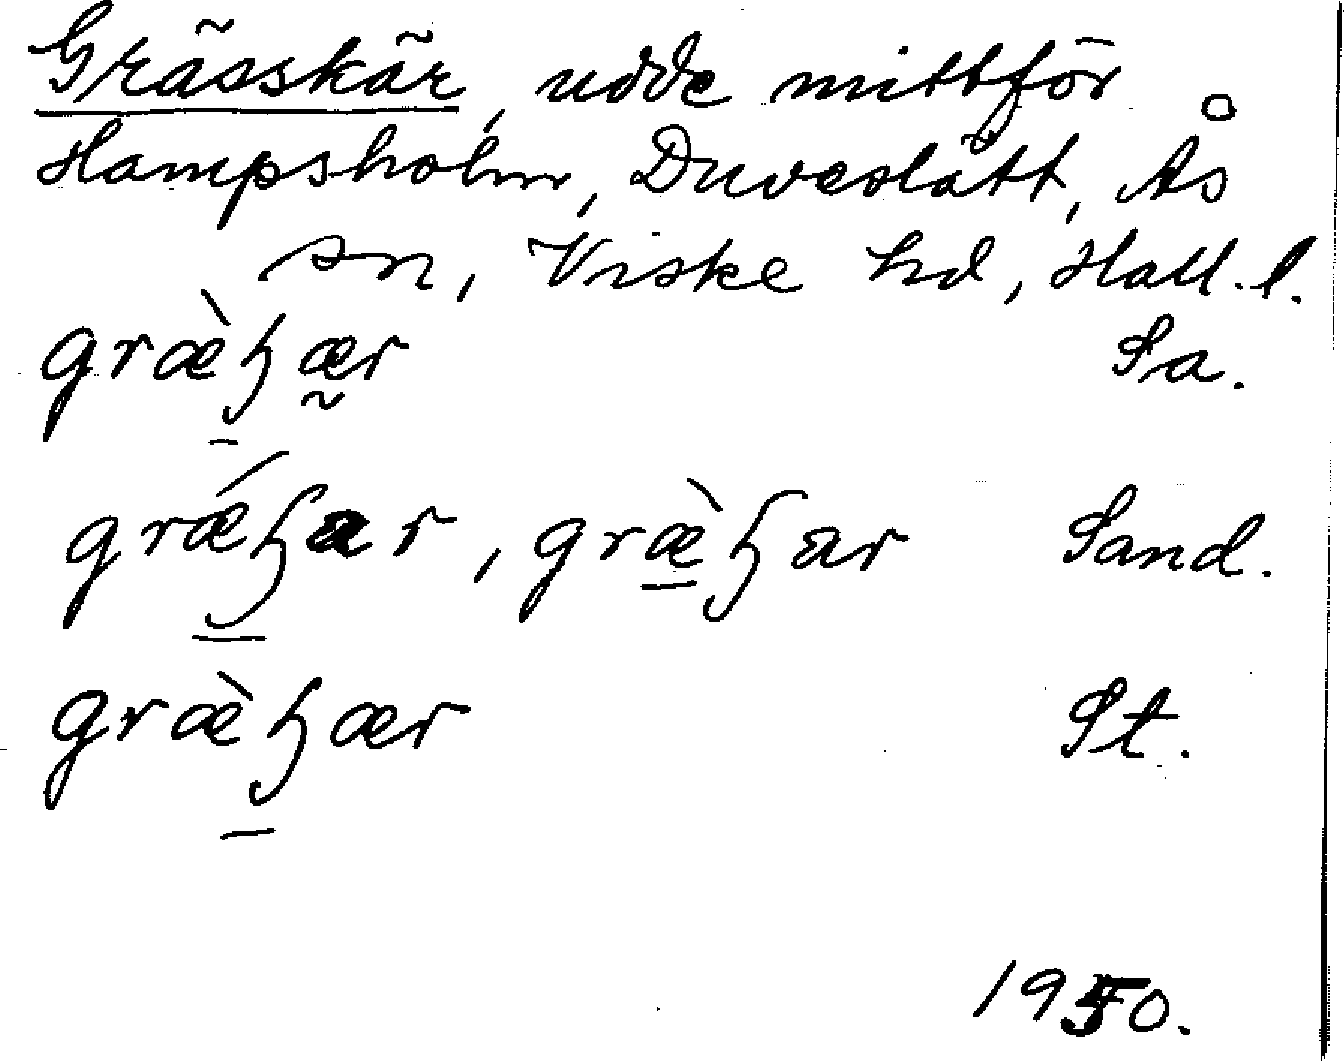 Grässkär, udde mittför
Hampsholm, Duveslätt, Ås
sn, Viske hd, Hall. l.
græ̀ꜧær Sa.
grǽꜧar, græ̀ꜧar Sand.
græ̀ꜧær St.
1950.